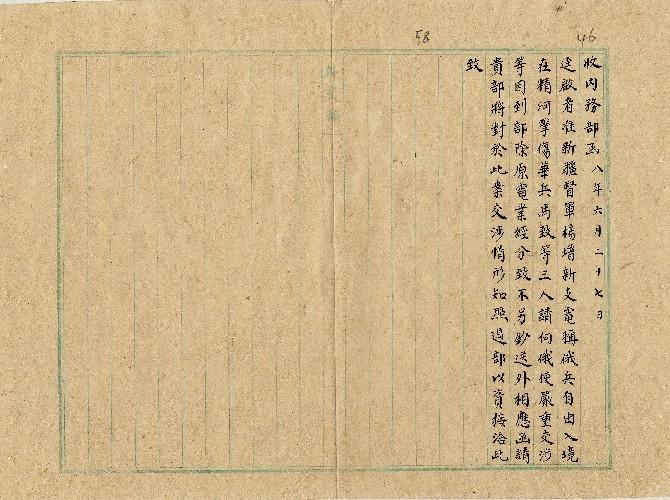 58
46
收內務部函 八年六月二十七日
逕啟者准新疆督軍楊增新支電稱俄兵自由入境
在精河擊傷華兵馬致等三人請向俄使嚴重交涉
等因到部除原電業經分致不另鈔送外相應函請
貴部將對於此案交涉情形知照過部以資接洽此
致